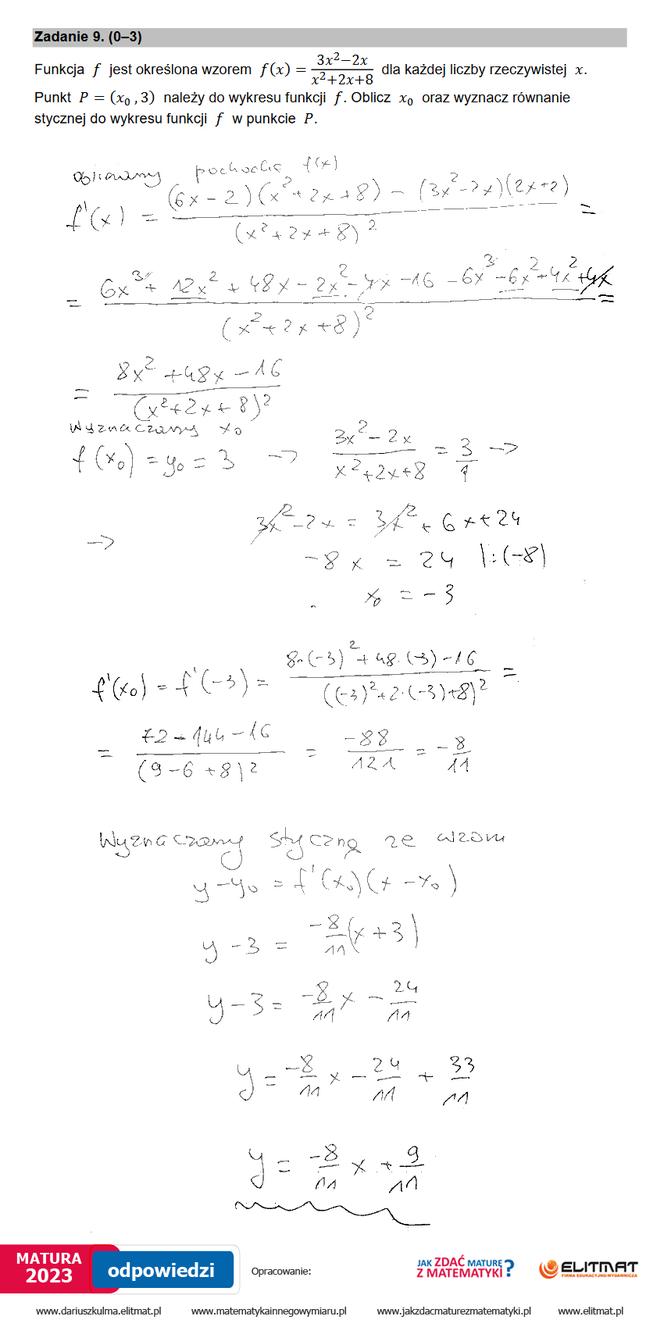 Zadanie 9. (0–3)
Funkcja f jest określona wzorem f(x) = (3x²−2x)/(x²+2x+8) dla każdej liczby rzeczywistej x.
Punkt P = (x₀ , 3) należy do wykresu funkcji f. Oblicz x₀ oraz wyznacz równanie
stycznej do wykresu funkcji f w punkcie P.
obliczamy pochodną f(x)
f'(x) = ((6x − 2)(x² + 2x + 8) − (3x² − 2x)(2x + 2))/(x² + 2x + 8)² =
= (6x³ + 12x² + 48x − 2x² − 4x − 16 − 6x³ − 6x² + 4x² + 4x)/(x² + 2x + 8)² =
= (8x² + 48x − 16)/(x² + 2x + 8)²
Wyznaczamy x₀
f(x₀) = y₀ = 3 → (3x² − 2x)/(x² + 2x + 8) = 3/1 →
→ 3x² − 2x = 3x² + 6x + 24
−8x = 24 |:(−8)
x₀ = −3
f'(x₀) = f'(−3) = (8·(−3)² + 48·(−3) − 16)/((−3)² + 2·(−3) + 8)² =
= (72 − 144 − 16)/(9 − 6 + 8)² = −88/121 = −8/11
Wyznaczamy styczną ze wzoru
y − y₀ = f'(x₀)(x − x₀)
y − 3 = −8/11 (x + 3)
y − 3 = −8/11 x − 24/11
y = −8/11 x − 24/11 + 33/11
y = −8/11 x + 9/11
MATURA
2023
odpowiedzi
Opracowanie:
JAK ZDAĆ MATURĘ
Z MATEMATYKI?
ELITMAT
FIRMA EDUKACYJNO-WYDAWNICZA
www.dariuszkulma.elitmat.pl www.matematykainnegowymiaru.pl www.jakzdacmaturezmatematyki.pl www.elitmat.pl